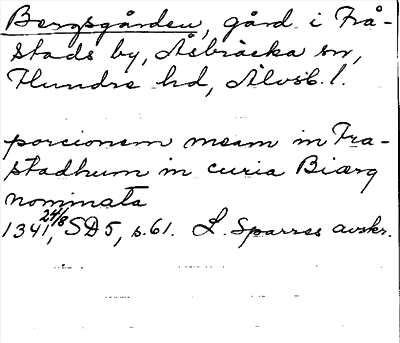 Bergsgården, gård i Frå-
stads by, Åsbräcka sn,
Flundre hd, Älvsb. l.
porcionem meam in Fra-
stadhum in curia Biærg
nominata
1341 24/8, SD 5, s. 61. L. Sparres avskr.